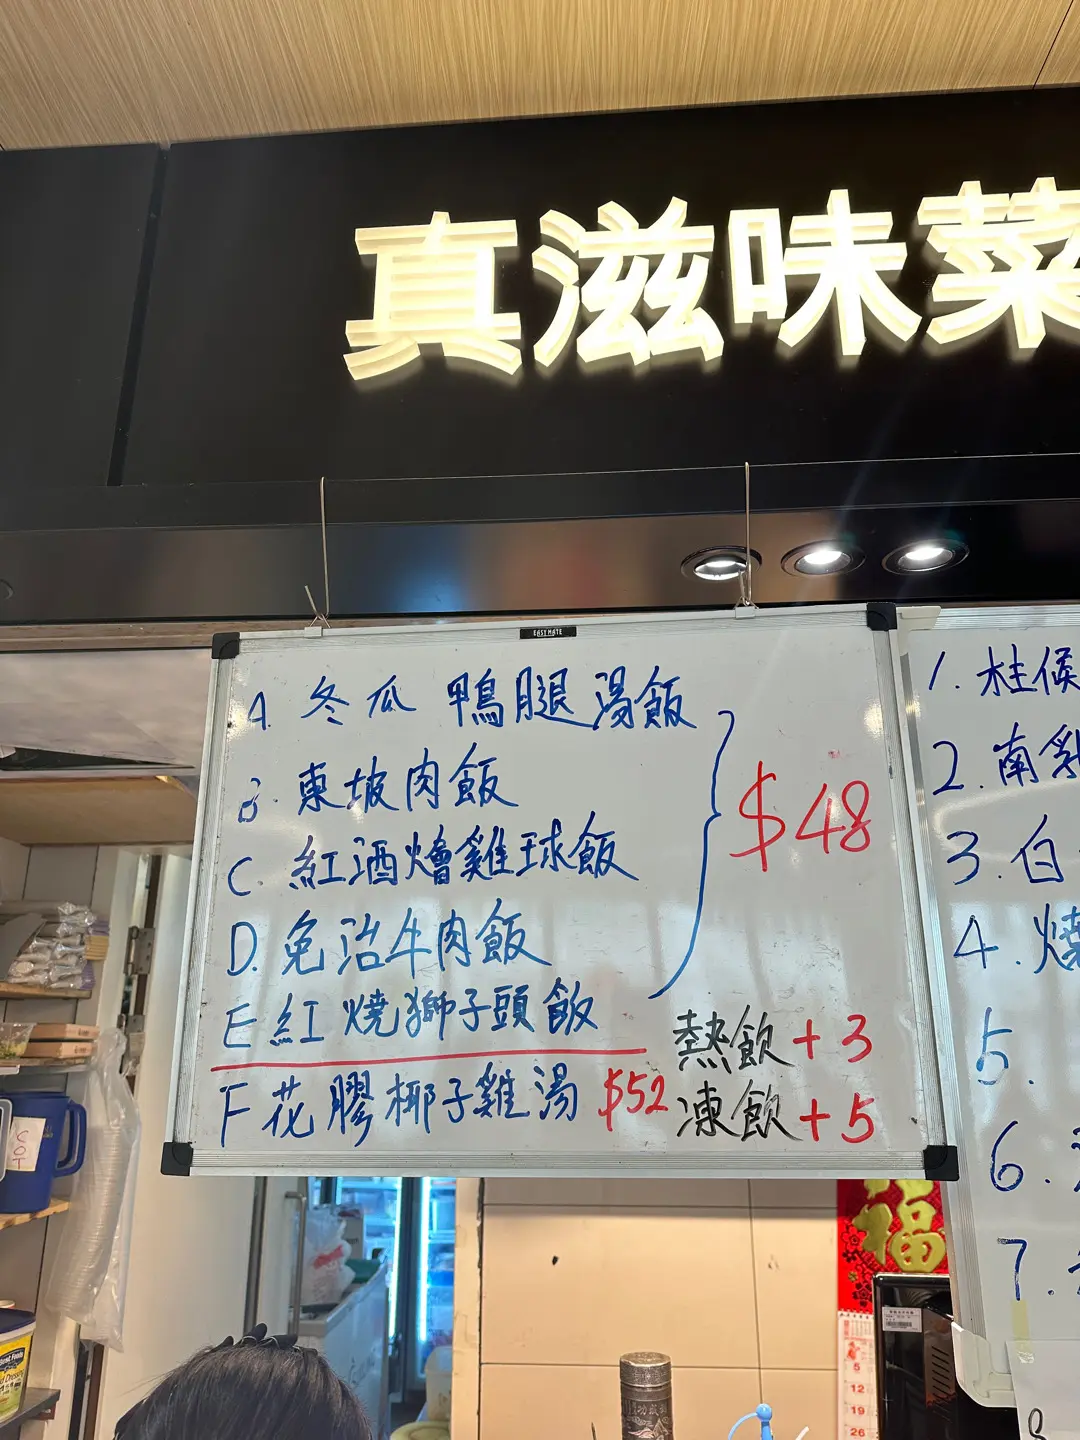 真滋味菜
EASYMATE
A. 冬瓜 鴨腿湯飯
B. 東坡肉飯
C. 紅酒燴雞球飯
D. 免治牛肉飯
E 紅燒獅子頭飯
$48
F 花膠椰子雞湯 $52
熱飲 + 3
凍飲 + 5
1. 柱候
2. 南乳
3. 白
4. 燒
5.
6.
7.
8
福
COT
5
12
19
26